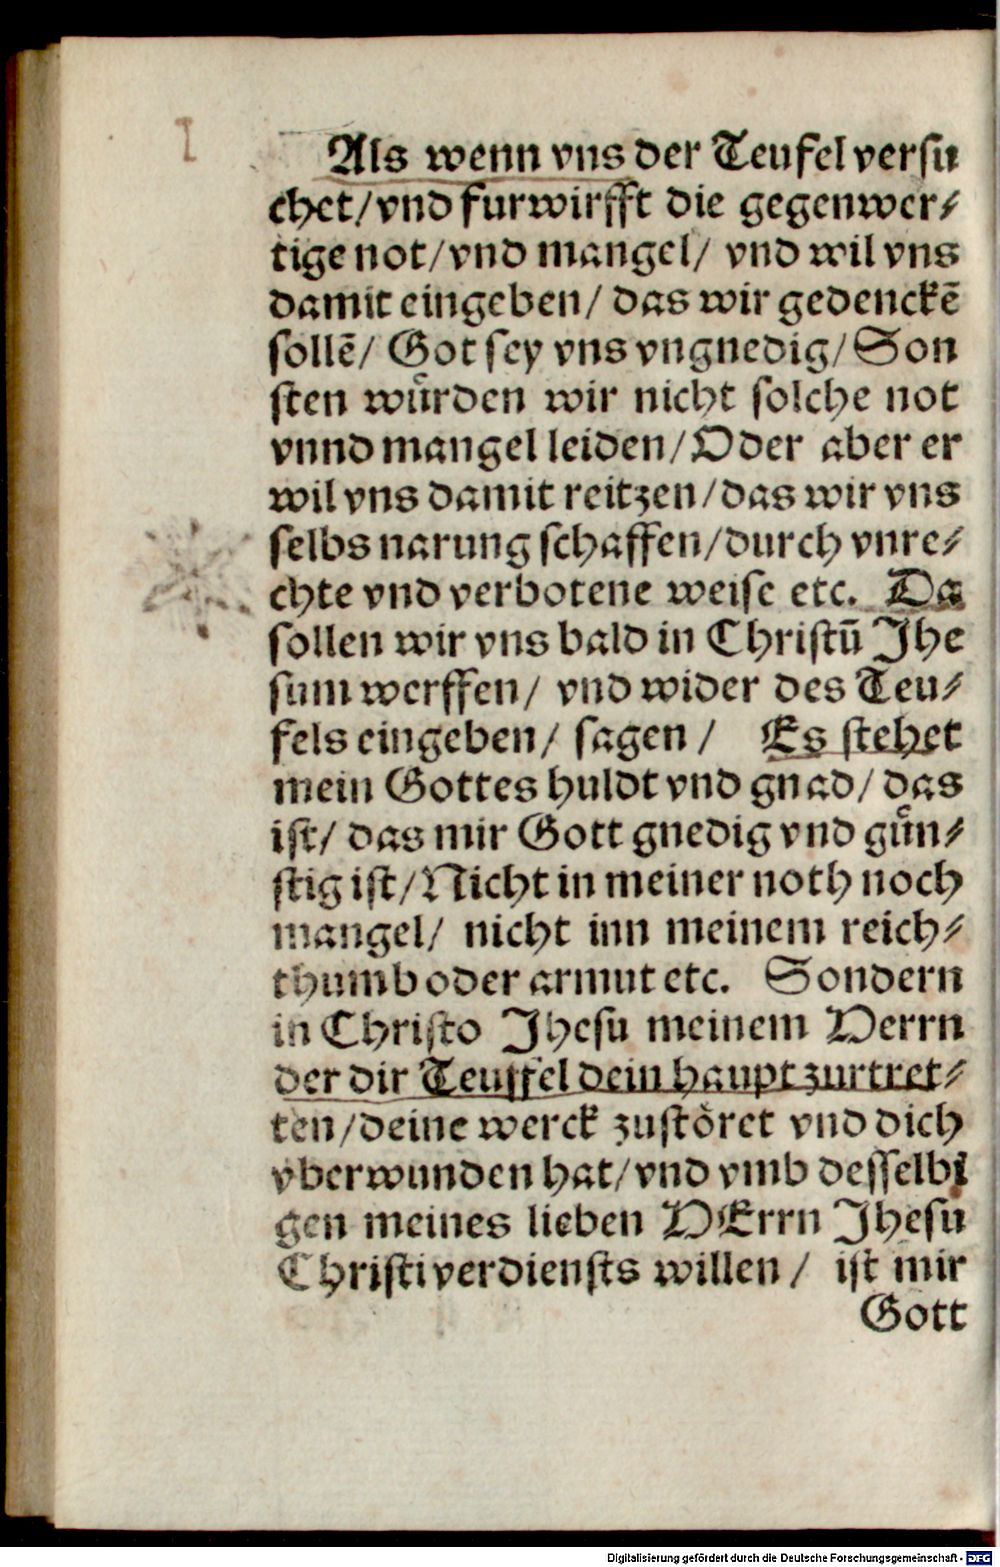 I
Als wenn vns der Teufel versu
chet/vnd furwirfft die gegenwer⸗
tige not/vnd mangel/ vnd wil vns
damit eingeben/ das wir gedenckē
sollē/ Got sey vns vngnedig/Son
sten wuͤrden wir nicht solche not
vnnd mangel leiden/Oder aber er
wil vns damit reitzen/das wir vns
selbs narung schaffen/durch vnre⸗
chte vnd verbotene weise etc. Da
sollen wir vns bald in Christū Jhe
sum werffen/ vnd wider des Teu⸗
fels eingeben/ sagen/ Es stehet
mein Gottes huldt vnd gnad/ das
ist/ das mir Gott gnedig vnd guͤn⸗
stig ist/Nicht in meiner noth noch
mangel/ nicht inn meinem reich⸗
thumb oder armut etc. Sondern
in Christo Jhesu meinem Herrn
der dir Teuffel dein haupt zurtret⸗
ten/deine werck zustöret vnd dich
vberwunden hat/vnd vmb desselbi
gen meines lieben HErrn Jhesu
Christi verdiensts willen/ ist mir
Gott
Digitalisierung gefördert durch die Deutsche Forschungsgemeinschaft - DFG